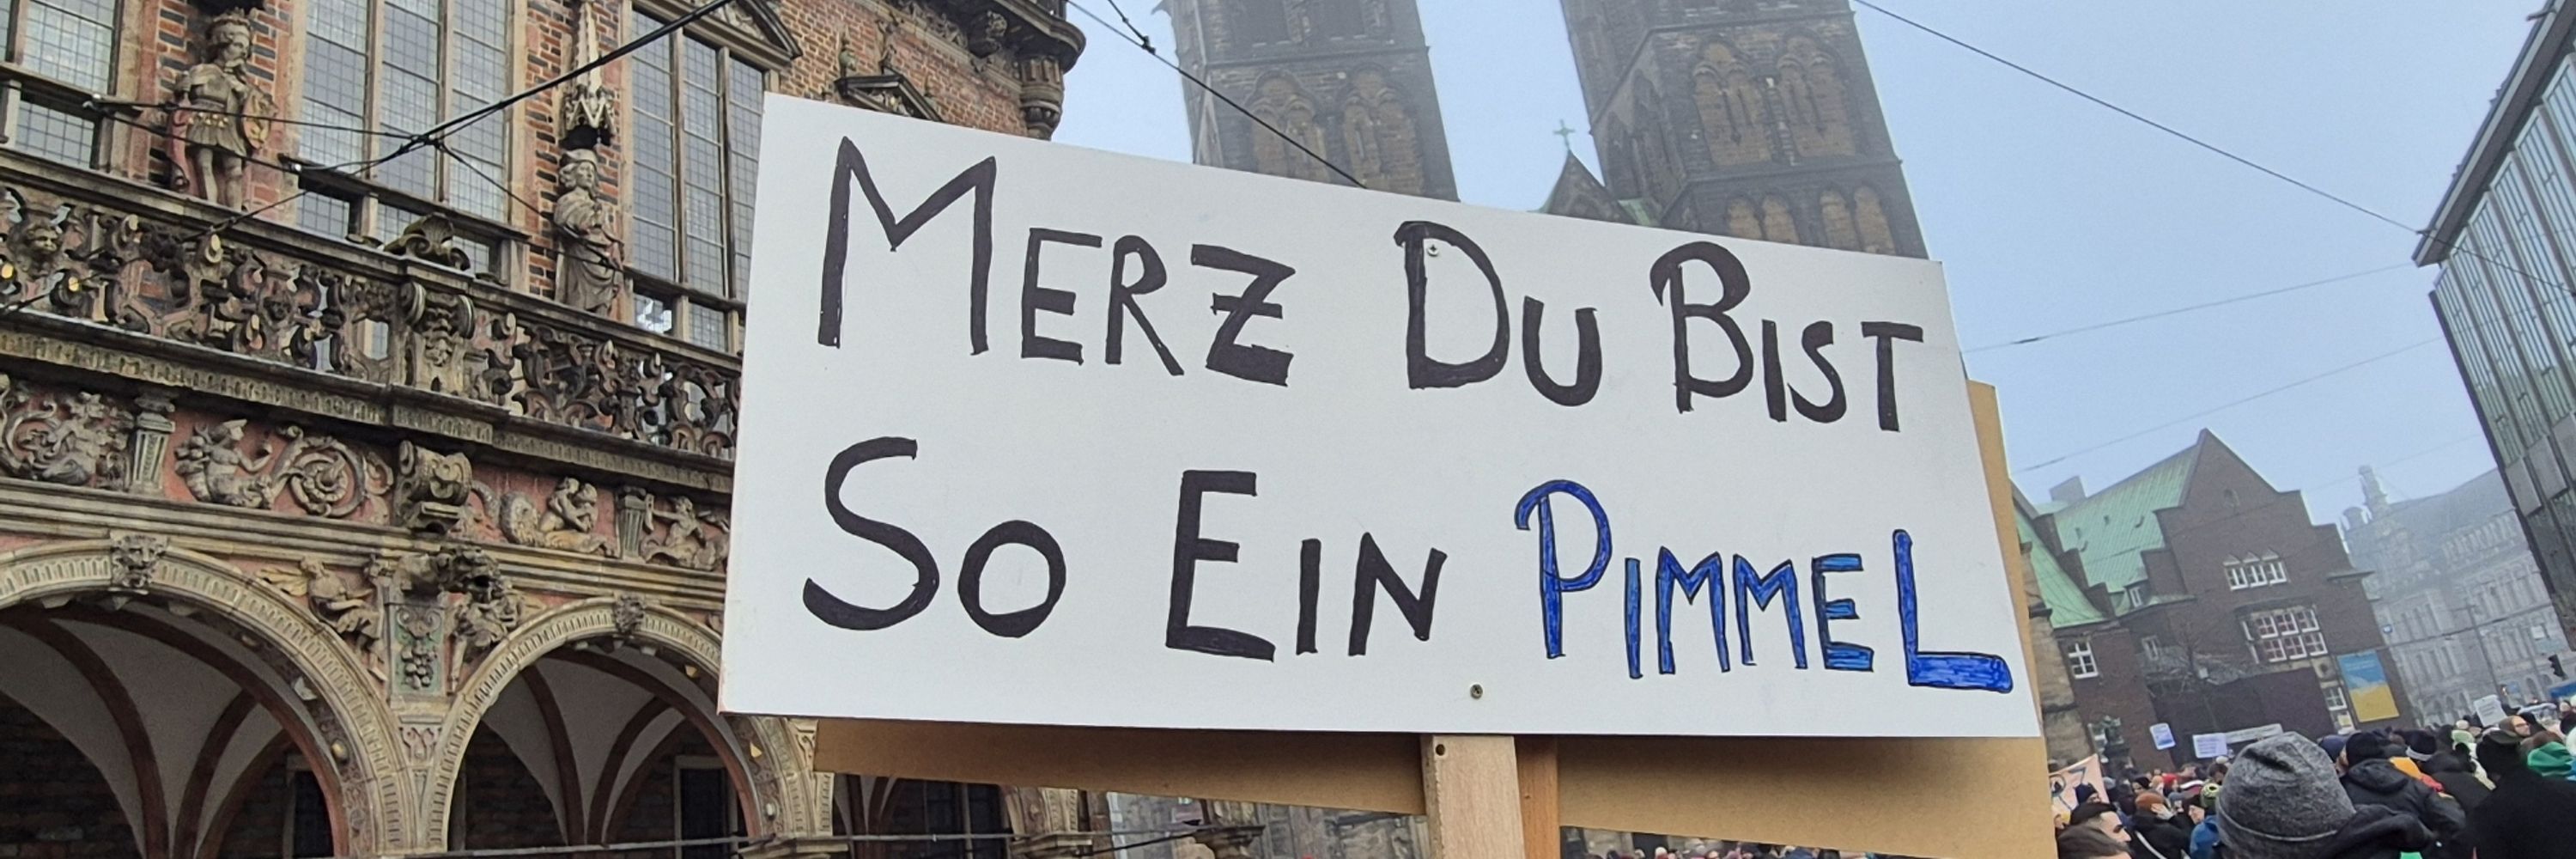 MERZ DU BIST
SO EIN PIMMEL